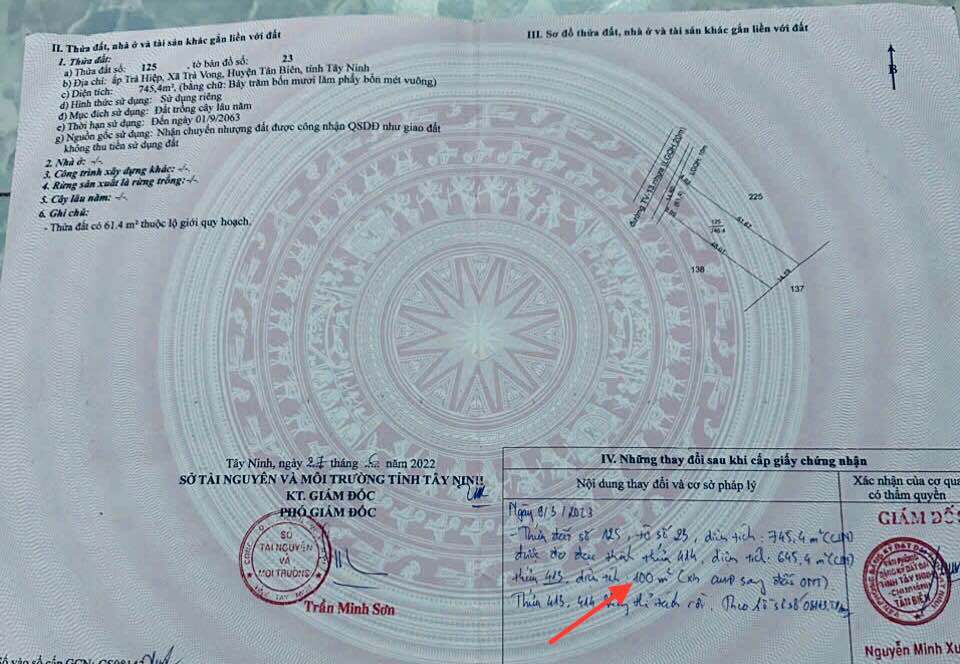 II. Thửa đất, nhà ở và tài sản khác gắn liền với đất
1. Thửa đất:
a) Thửa đất số: 125 , tờ bản đồ số: 23
b) Địa chỉ: ấp Trà Hiệp, Xã Trà Vong, Huyện Tân Biên, tỉnh Tây Ninh
c) Diện tích: 745,4m², (bằng chữ: Bảy trăm bốn mươi lăm phẩy bốn mét vuông)
d) Hình thức sử dụng: Sử dụng riêng
đ) Mục đích sử dụng: Đất trồng cây lâu năm
e) Thời hạn sử dụng: Đến ngày 01/9/2063
g) Nguồn gốc sử dụng: Nhận chuyển nhượng đất được công nhận QSDĐ như giao đất
không thu tiền sử dụng đất
2. Nhà ở: -/-.
3. Công trình xây dựng khác: -/-.
4. Rừng sản xuất là rừng trồng: -/-.
5. Cây lâu năm: -/-.
6. Ghi chú:
- Thửa đất có 61.4 m² thuộc lộ giới quy hoạch.
Tây Ninh, ngày 27 tháng năm 2022
SỞ TÀI NGUYÊN VÀ MÔI TRƯỜNG TỈNH TÂY NINH
KT. GIÁM ĐỐC
PHÓ GIÁM ĐỐC
SỞ
TÀI NGUYÊN
VÀ
MÔI TRƯỜNG
Trần Minh Sơn
Số vào sổ cấp GCN:
III. Sơ đồ thửa đất, nhà ở và tài sản khác gắn liền với đất
B
đường TV-13 nhựa (LGQH 20m)
LGQH 10m
225
125
745.4
138
137
IV. Những thay đổi sau khi cấp giấy chứng nhận
Nội dung thay đổi và cơ sở pháp lý
Xác nhận của cơ qua
có thẩm quyền
Ngày 8/3/2023
- Thửa đất số 125, tờ số 23, diện tích: 745,4 m² (CLN)
được đo đạc thành thửa 414, diện tích: 645,4 m² (CLN)
thửa 413, diện tích 100 m² (xin sang đất ONT)
Thửa 413, 414 rời. Theo hồ sơ số
GIÁM ĐỐ
VĂN PHÒNG
ĐĂNG KÝ ĐẤT ĐAI
TỈNH TÂY NINH
CHI NHÁNH
TÂN BIÊN
Nguyễn Minh Xu